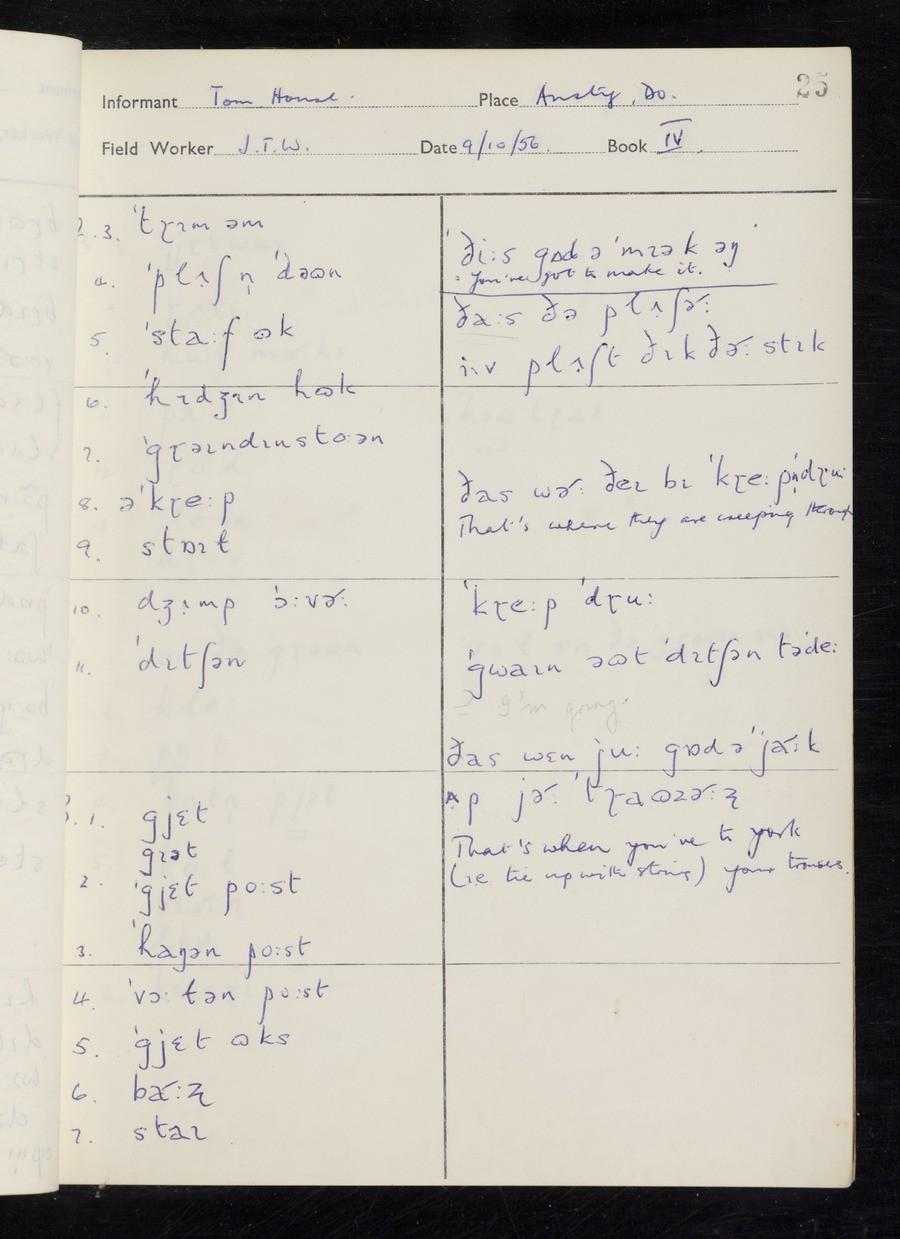 25
Informant Tom House. Place Ansty, Do.
Field Worker J.T.W. Date 9/10/56. Book IV.
2.3. ˈtɽɪm əm
4. ˈplʌ̨ʃ n̩ ˈdəʊn
5. ˈsta:f ɷk
6. ˈhɪdʒɪn hɷk
7. ˈgɽəɪndɪnstoːən
8. əˈkɽe:p
9. stɒɪt
10. dʒʌ̨mp ˈɔ:vɚ:
11. ˈdɪtʃən
3.1. gjɛt
gɪət
2. ˈgjɛt po:st
3. ˈhaŋən po:st
4. ˈvɔ:ɫən po:st
5. ˈgjɛt ɷks
6. ba˞:z̢
7. staɪ
ˈði:s gɒd əˈmɪək əŋ
: You've got to make it.
ða:s ðə plʌ̨ʃɚ:
i:v plʌ̨ʃt ðɪk ðɚ: stɪk
ðas wɚ: ðeɪ bɪ ˈkɽe:pn̩dɽu:
That's where they are creeping through
ˈkɽe:p ˈdɽu:
ˈgwaɪn əɷt dɪtʃən təde:
? I'm going.
ðas wɛn ju: gɒd əˈja˞:k
ʌp jɚ: ˈtɽaɷzɚ:z̢
That's when you've to york
(ie tie up with string) your trousers.